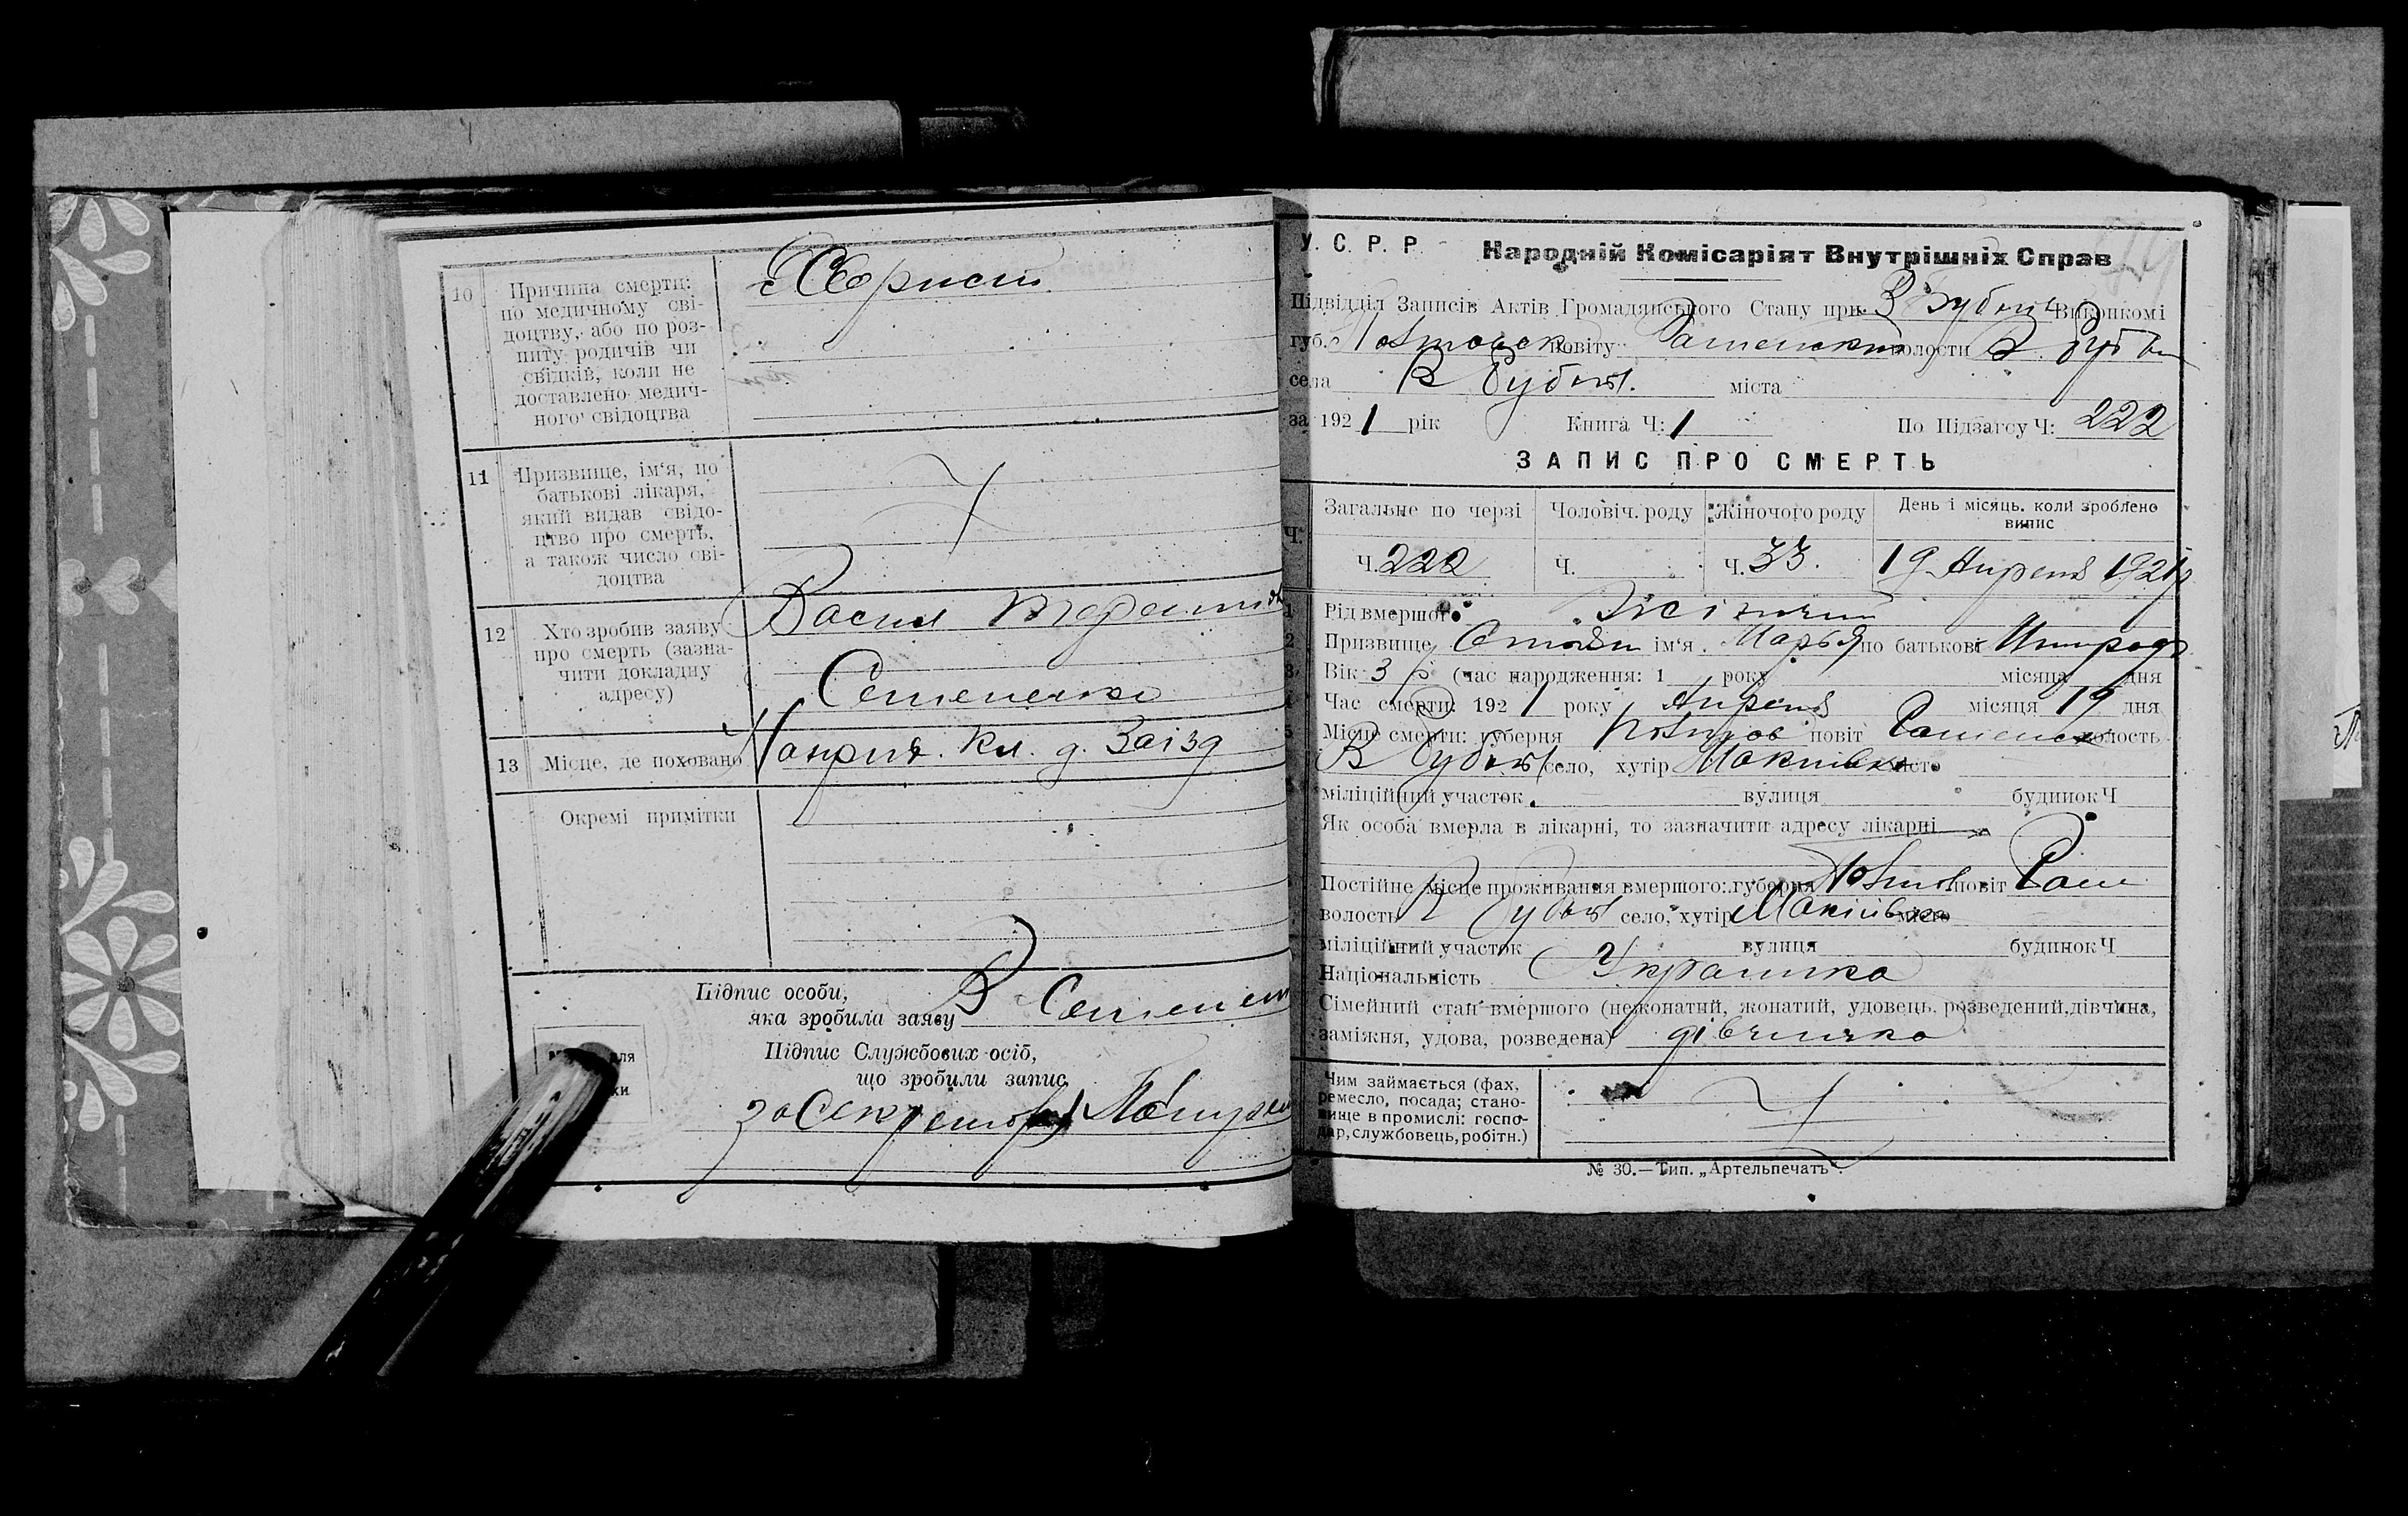 10 Причина смерти:
по медичному сві-
доцтву, або по роз-
питу родичів чи
свідків, коли не
доставлено медич-
ного свідоцтва
11 Призвище, ім'я, по
батькові лікаря,
який видав свідо-
цтво про смерть,
а також число сві-
доцтва
12 Хто зробив заяву
про смерть (зазна-
чити докладну
адресу)
Васил
Семененко
13 Місце, де поховано кл. д. Заізд
Окремі примітки
Підпис особи,
яка зробила заяву В Семен
Підпис Службових осіб,
що зробили запис
за Секретар
У. С. Р. Р. Народній Комісаріят Внутрішніх Справ
Підвідділ Записів Актів Громадянського Стану при В Бубон Виконкомі
губ. Полтавск повіту волости
села В Бубни. міста
за 1921 рік Книга Ч: 1 По Підзагсу Ч: 222
ЗАПИС ПРО СМЕРТЬ
Ч. Загальне по черзі Чоловіч. роду Жіночого роду День і місяць, коли зроблено
випис
Ч. 222 Ч. Ч. 33. 19 Апреля 1921 р
1 Рід вмершого Жіночий
2 Призвище ім'я Марья по батькові
3 Вік 3 (час народження: 1 року місяця дня
4 Час смерти: 1921 року Апреля місяця 19 дня
5 Місце смерти: губерня Полтав повіт волость
В Бубни село, хутір Макіівка місто
міліційний участок вулиця будинок Ч
Як особа вмерла в лікарні, то зазначити адресу лікарні
Постійне місце проживання вмершого: губерня Полтав повіт
волость В Бубни село, хутір Макіівка місто
міліційний участок вулиця будинок Ч
Національність Украинка
Сімейний стан вмершого (нежонатий, жонатий, удовець, розведений, дівчина,
заміжня, удова, розведена) дівчинка
Чим займається (фах,
ремесло, посада; стано-
вище в промислі: госпо-
дар, службовець, робітн.)
№ 30.—Тип. „Артельпечать".